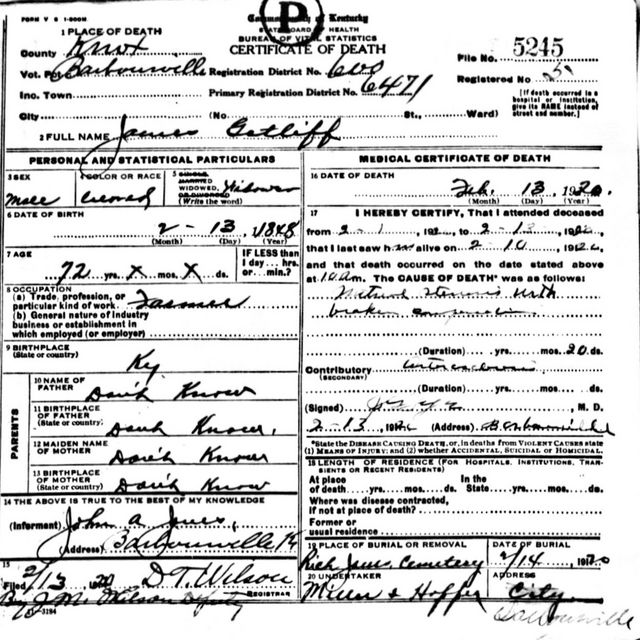 FORM V S 1-500M
Commonwealth of Kentucky
STATE BOARD OF HEALTH
BUREAU OF VITAL STATISTICS
CERTIFICATE OF DEATH
P
1 PLACE OF DEATH
County Knox
File No. 5245
Vot. Pct. Barbourville Registration District No. 600
Registered No.
Inc. Town Primary Registration District No. 6471
[If death occurred in a hospital or institution, give its NAME instead of street and number.]
City (No St., Ward)
2 FULL NAME James Getliff
PERSONAL AND STATISTICAL PARTICULARS
3 SEX Male
4 COLOR OR RACE Colored
5 SINGLE, MARRIED WIDOWED, OR DIVORCED (Write the word) Widower
6 DATE OF BIRTH
2 - 13, 1848
(Month) (Day) (Year)
7 AGE
72 yrs. X mos. X ds.
IF LESS than 1 day... hrs. or... min.?
8 OCCUPATION
(a) Trade, profession, or particular kind of work Farmer
(b) General nature of industry business or establishment in which employed (or employer)
9 BIRTHPLACE
(State or country) Ky
PARENTS
10 NAME OF FATHER Don't Know
11 BIRTHPLACE OF FATHER (State or country) Dont Know.
12 MAIDEN NAME OF MOTHER Don't Know
13 BIRTHPLACE OF MOTHER (State or country) Don't Know
14 THE ABOVE IS TRUE TO THE BEST OF MY KNOWLEDGE
(Informant) John A Jones,
(Address) Barbourville Ky
15
Filed 2/13 1920 D. T. Wilson
REGISTRAR
By J. M. Wilson Dputy
3184
MEDICAL CERTIFICATE OF DEATH
16 DATE OF DEATH
Feb. 13, 1920.
(Month) (Day) (Year)
17 I HEREBY CERTIFY, That I attended deceased
from 2 - 1, 192 , to 2 - 13, 1920,
that I last saw h alive on 2 - 10, 1920,
and that death occurred on the date stated above
at 10 am. The CAUSE OF DEATH* was as follows:
Mitral with
broken
(Duration) yrs. mos. 20 ds.
Contributory
(SECONDARY)
(Duration) yrs. mos. ds.
(Signed) , M. D.
2 - 13, 1920 (Address) Barbourville
*State the DISEASE CAUSING DEATH, or, in deaths from VIOLENT CAUSES state (1) MEANS OF INJURY; and (2) whether ACCIDENTAL, SUICIDAL or HOMICIDAL.
18 LENGTH OF RESIDENCE (FOR HOSPITALS, INSTITUTIONS, TRANSIENTS OR RECENT RESIDENTS)
At place of death yrs. mos. ds. In the State yrs. mos. ds.
Where was disease contracted, if not at place of death?
Former or usual residence
19 PLACE OF BURIAL OR REMOVAL
Cemetery
DATE OF BURIAL
2/14, 1920
20 UNDERTAKER
Miller & Hopper
ADDRESS
City
Barbourville